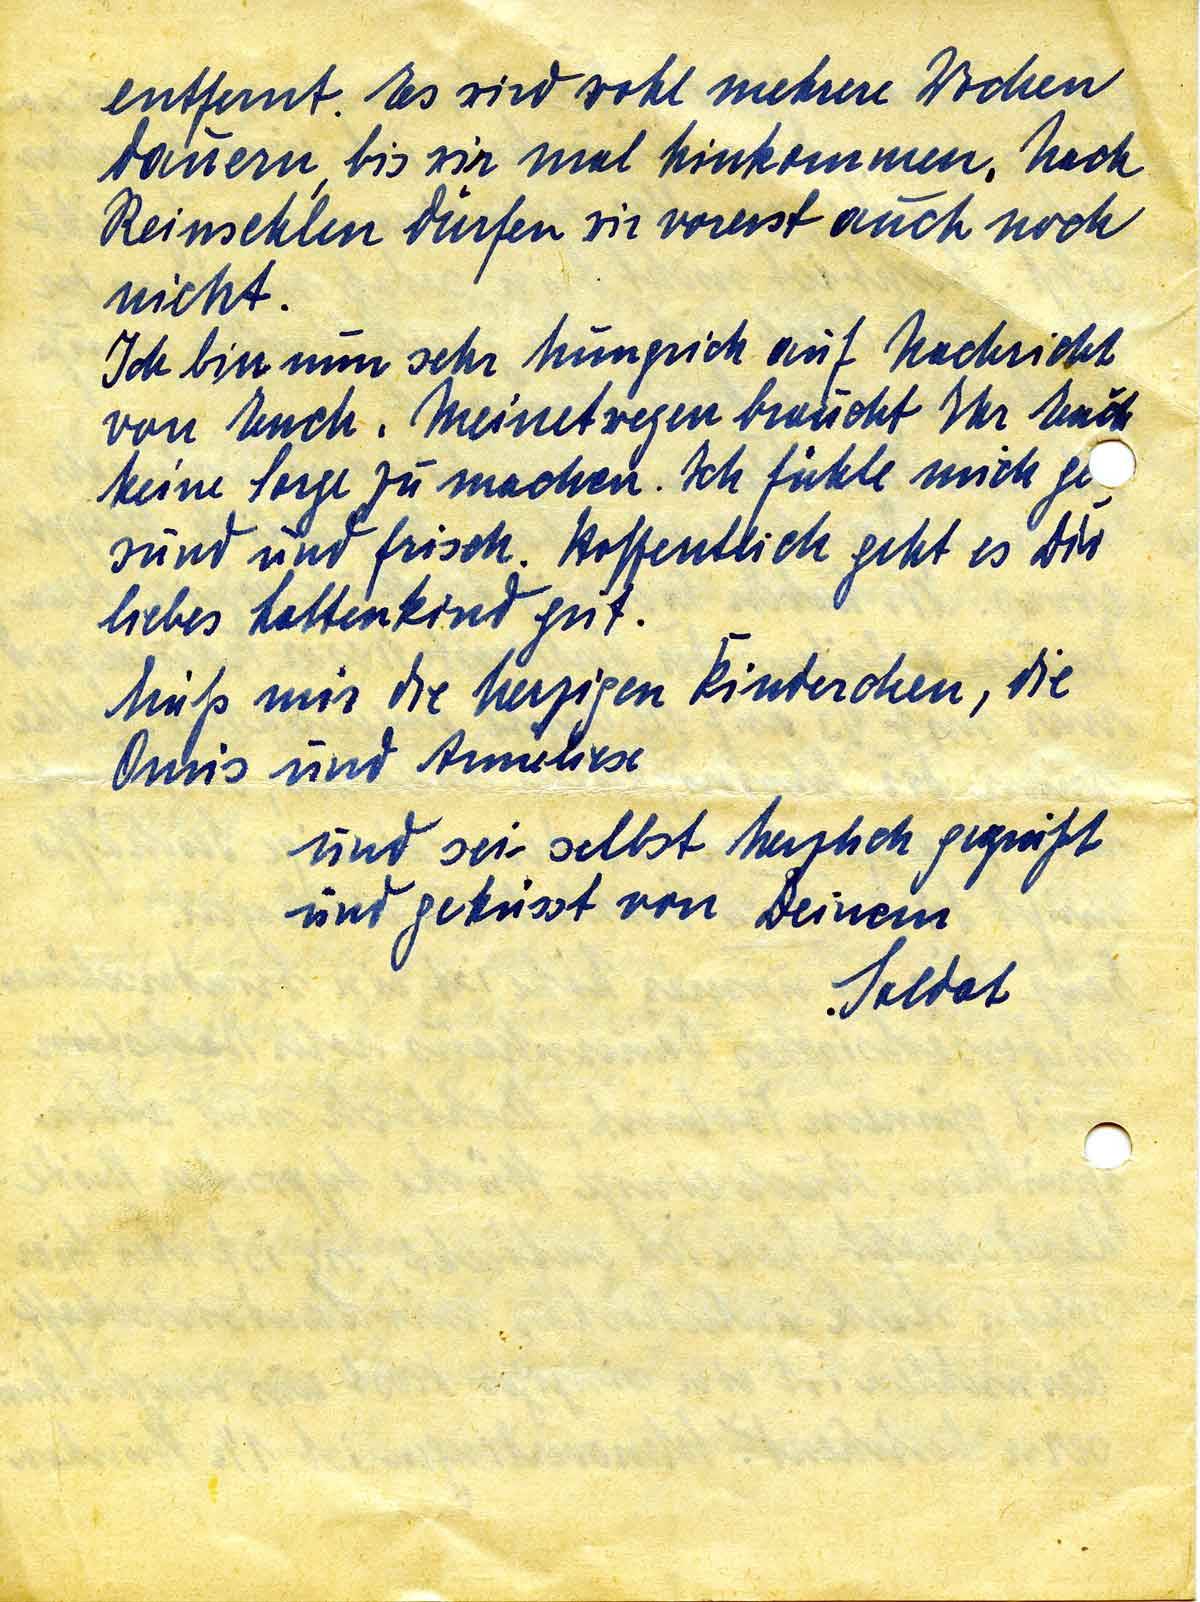 entfernt. Es wird wohl mehrere Wochen
dauern, bis wir mal hinkommen. Nach
Reinsehlen dürfen wir vorerst auch noch
nicht.
Ich bin nun sehr hungrich auf Nachricht
von Euch. Meinetwegen braucht Ihr Euch
keine Sorge zu machen. Ich fühle mich ge-
sund und frisch. Hoffentlich geht es Dir
liebes Lottenkind gut.
Küß mir die herzigen Kinderchen, die
Omis und Anneliese
und sei selbst herzlich gegrüßt
und geküsst von Deinem
Soldat